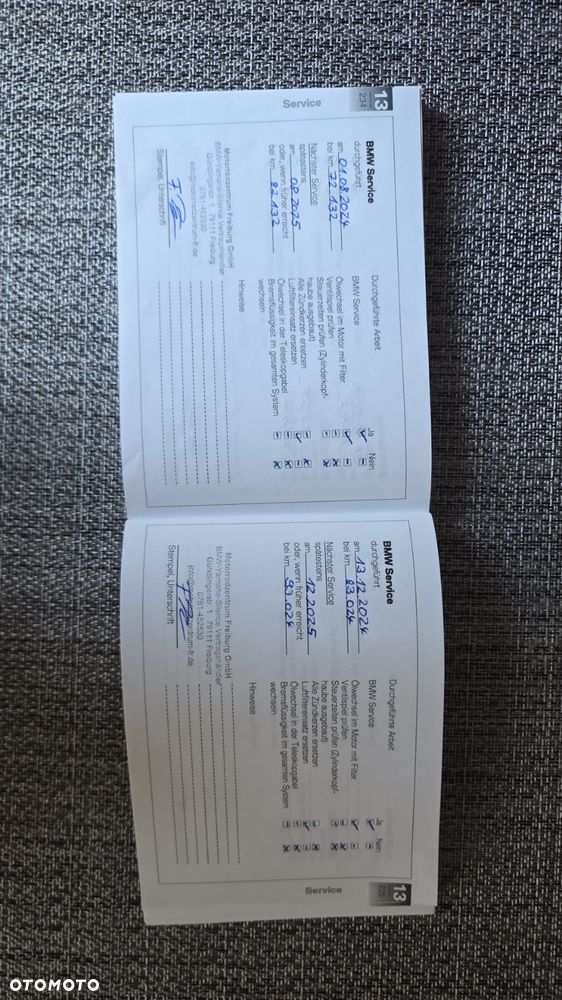 13
234
Service
BMW Service
durchgeführt
am 01.08.2024
bei km 72.132
Nächster Service
spätestens
am
oder, wenn früher erreicht
bei km 82132
Durchgeführte Arbeit
Ja Nein
BMW Service
Ölwechsel im Motor mit Filter
Ventilspiel prüfen
Steuerzeiten prüfen (Zylinderkopf-
haube ausgebaut)
Alle Zündkerzen ersetzen
Luftfiltereinsatz ersetzen
Ölwechsel in der Teleskopgabel
Bremsflüssigkeit im gesamten System
wechseln
Hinweise
Motorradzentrum Freiburg GmbH
BMW-Yamaha-Silence Vertragshändler
Gündlingerstr. 1, 79111 Freiburg
0761-452530
info@motorradzentrum-fr.de
Stempel, Unterschrift
13
Service
BMW Service
durchgeführt
am 13.12.2024
bei km 83.024
Nächster Service
spätestens
am 12.2025
oder, wenn früher erreicht
bei km 93.024
Durchgeführte Arbeit
Ja Nein
BMW Service
Ölwechsel im Motor mit Filter
Ventilspiel prüfen
Steuerzeiten prüfen (Zylinderkopf-
haube ausgebaut)
Alle Zündkerzen ersetzen
Luftfiltereinsatz ersetzen
Ölwechsel in der Teleskopgabel
Bremsflüssigkeit im gesamten System
wechseln
Hinweise
Motorradzentrum Freiburg GmbH
BMW-Yamaha-Silence Vertragshändler
Gündlingerstr. 1, 79111 Freiburg
0761-452530
Stempel, Unterschrift
OTOMOTO